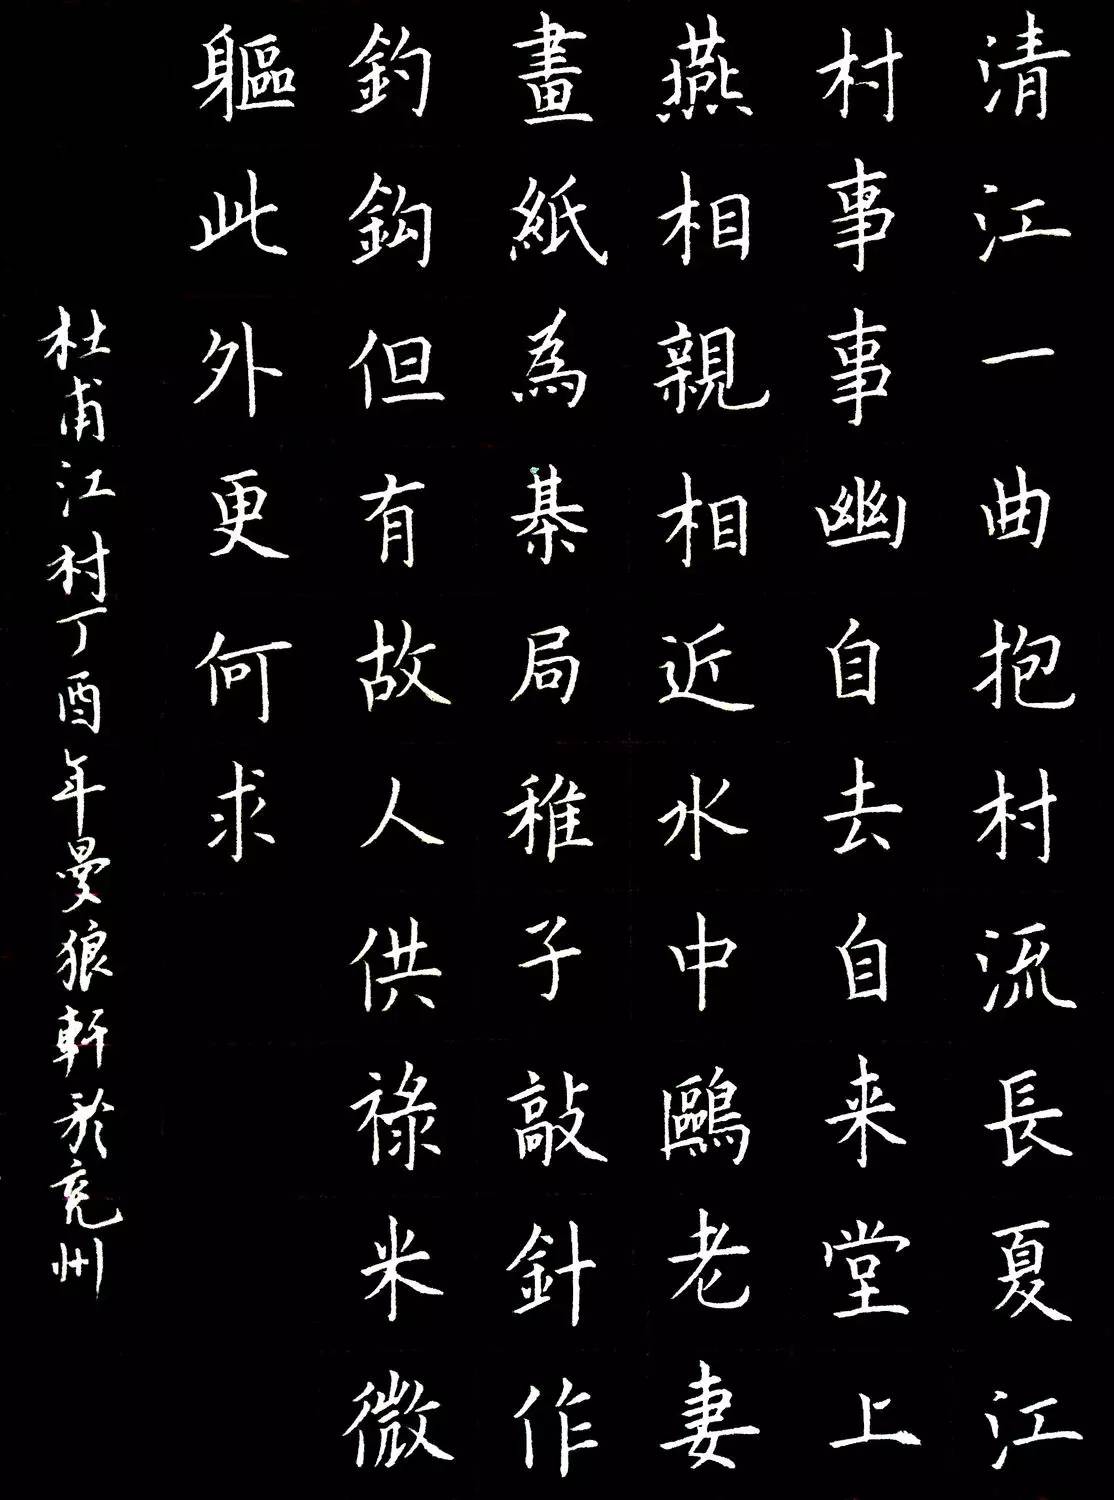 清江一曲抱村流長夏江
村事事幽自去自来堂上
燕相親相近水中鷗老妻
畫紙為棊局稚子敲針作
釣鈎但有故人供祿米微
軀此外更何求
杜甫江村丁酉年曼狼軒於兖州